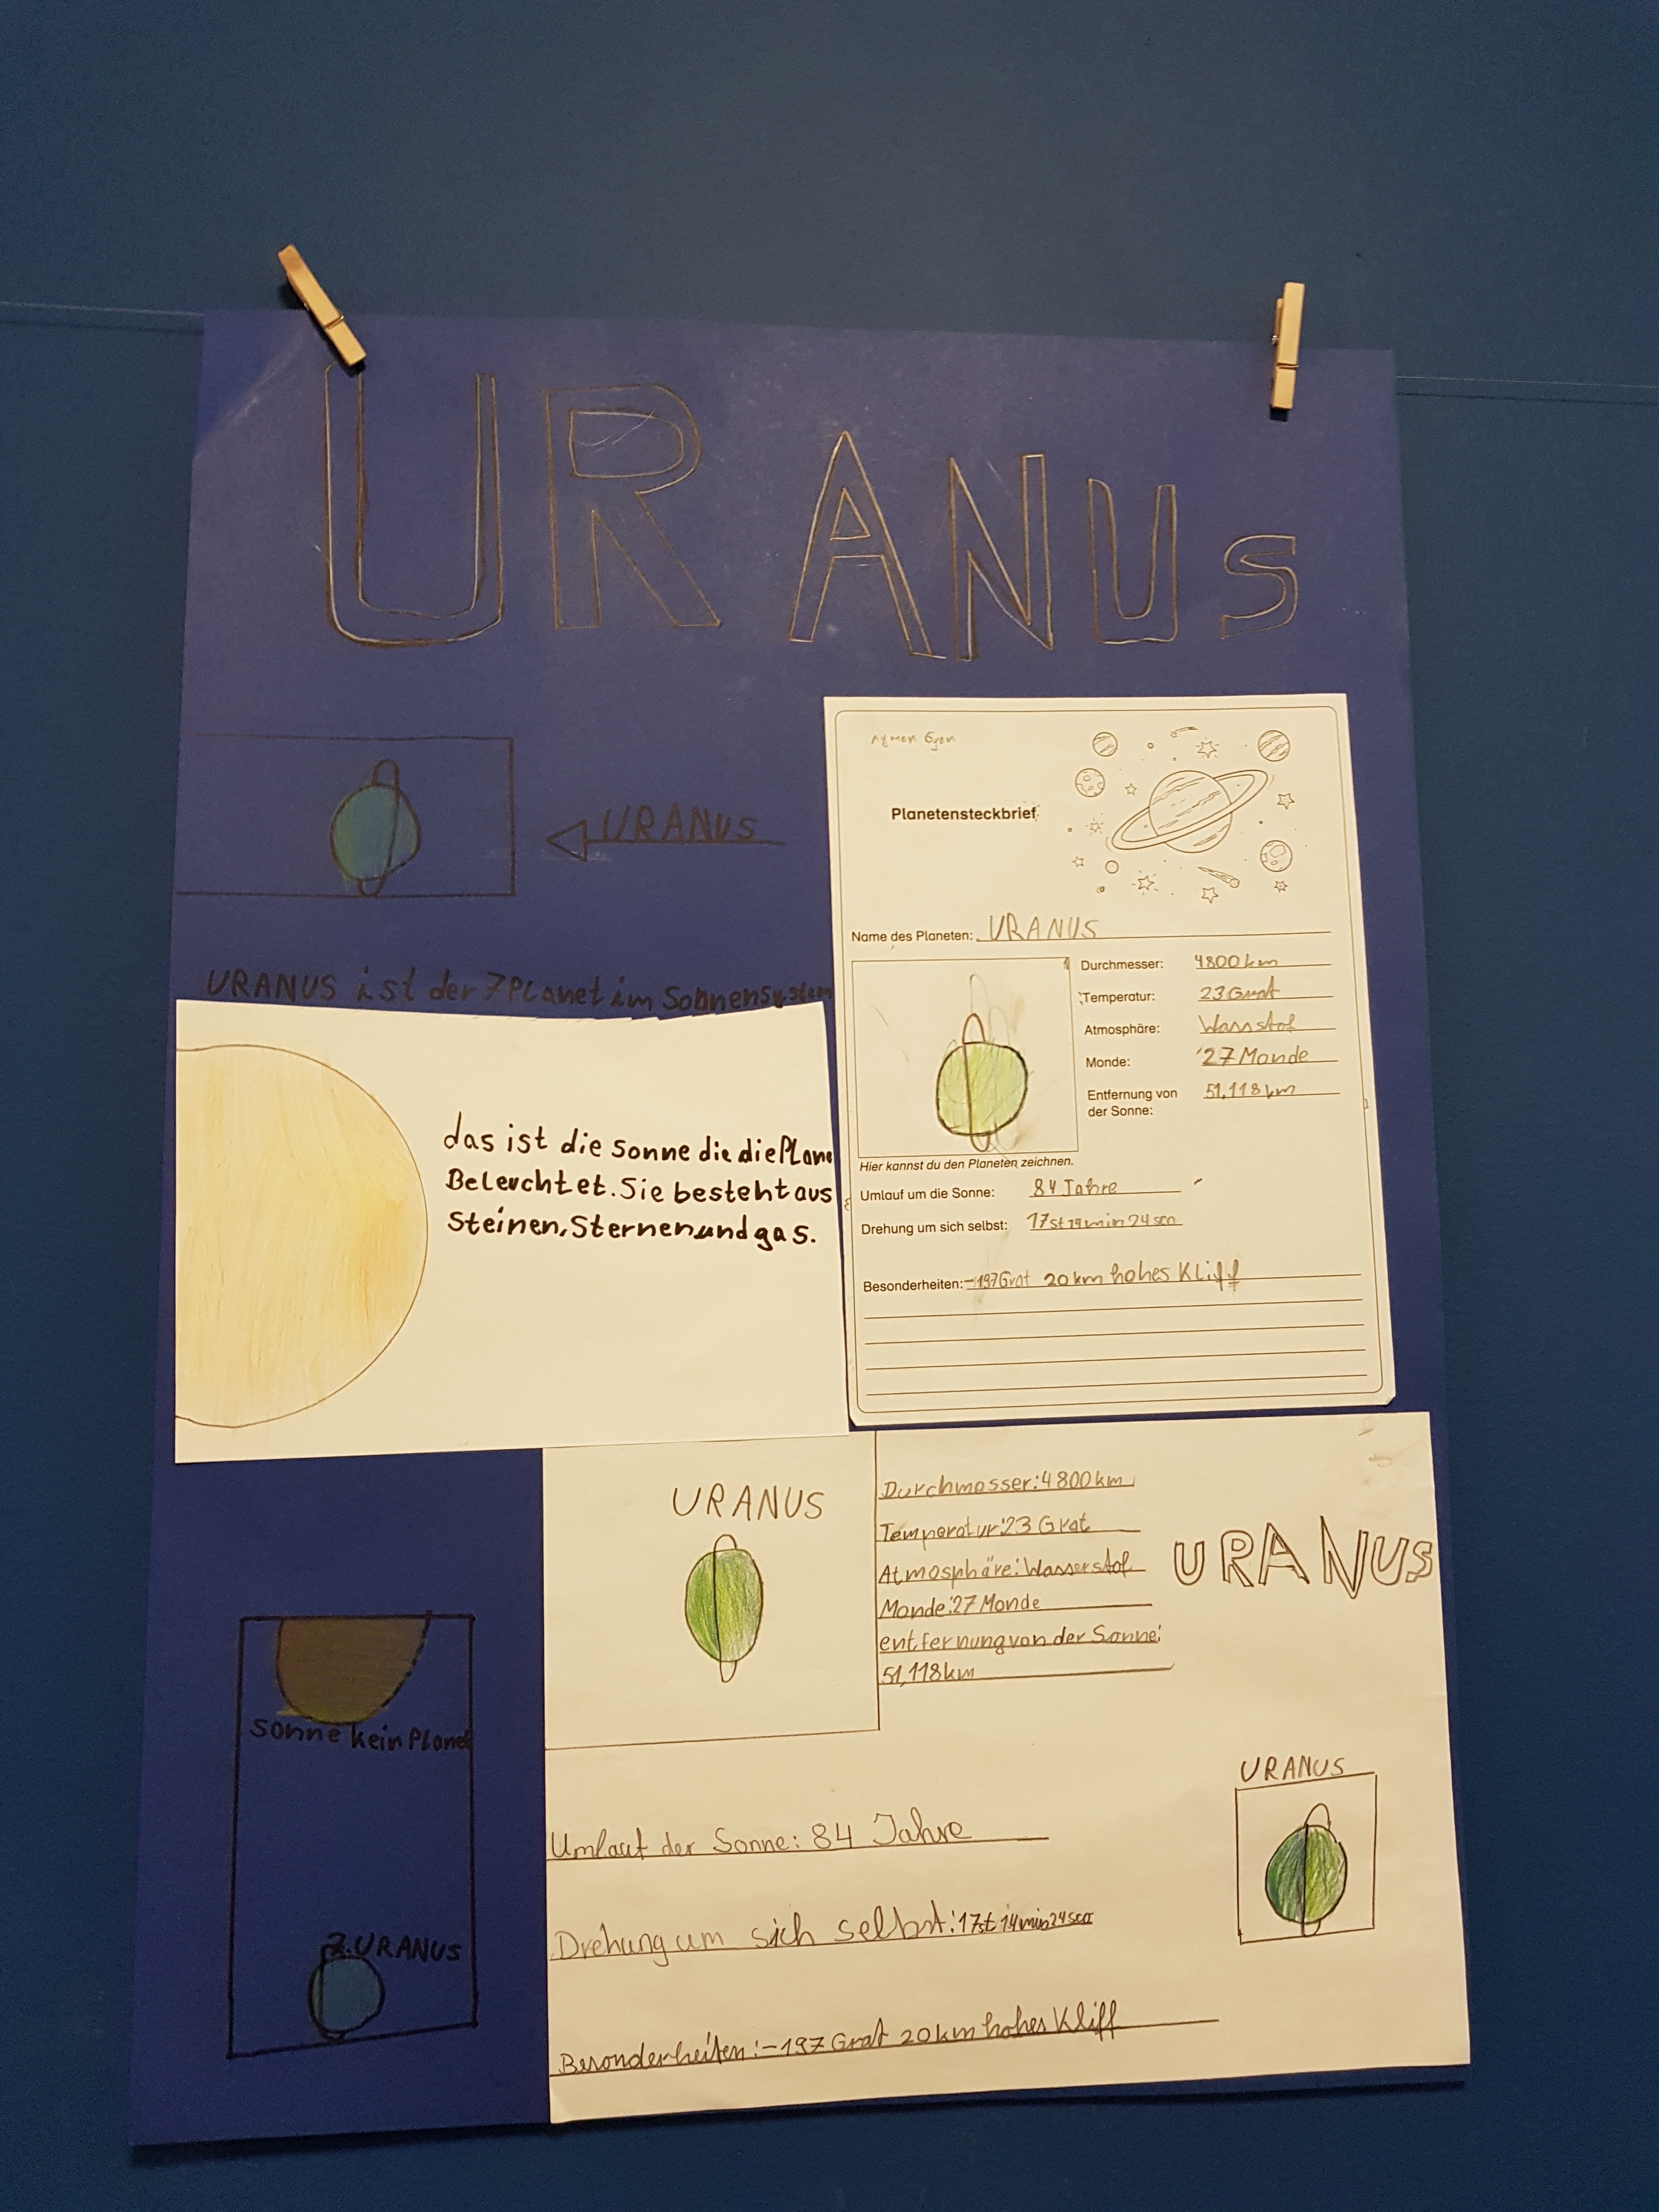 URANUS
URANUS
URANUS ist der 7 Planet im Sonnensystem
das ist die Sonne die die Plane
Beleuchtet. Sie besteht aus
Steinen, Sternen und gas.
Planetensteckbrief
Name des Planeten: URANUS
Durchmesser: 4800 km
Temperatur: 23 Grat
Atmosphäre: Wassstof
Monde: 27 Monde
Entfernung von
der Sonne: 51,118 km
Hier kannst du den Planeten zeichnen.
Umlauf um die Sonne: 84 Jahre
Drehung um sich selbst: 17st 14min 24sec
Besonderheiten: -197 Grat 20 km hohes Kliff
URANUS
Durchmesser: 4800 km
Temperatur: 23 Grat
Atmosphäre: Wasserstof
Monde: 27 Monde
entfernung von der Sonne:
51,118 km
URANUS
Sonne kein Planet
7. URANUS
URANUS
Umlauf der Sonne: 84 Jahre
Drehung um sich selbst: 17st 14min 24sec
Besonderheiten: -197 Grat 20 km hohes Kliff